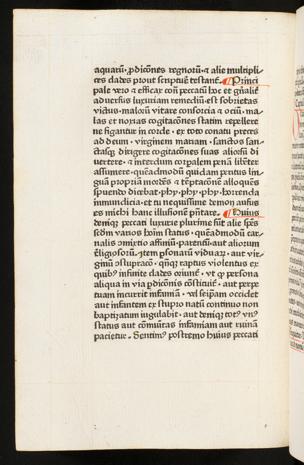 aquarū. ꝓdicōnes regnorū. ⁊ alie multipli
ces clades prout scripture testant̄. ¶ Princi
pale vero ⁊ efficax con̄ peccatū hoc et gn̄alit̄
aduersus luxuriam remediū est sobrietas
victus. maloꝝ vitare consorcia ⁊ ociū. ma
las et noxias cogitacōnes statim repellere
ne figantur in corde. ex toto conatu preces
ad deum. virginem mariam. sanctos san
ctasqꝫ dirigere cogitacōnes suas aliorsū di
uertere. ⁊ interdum corpalem penā libēter
assumere. quēadmodū quidam penitus lin
guā propria mordēs ⁊ tēptacōne alioquēs
spuendo dicebat. phy. phy. phy. horrenda
inmundicia. et tu nequissime demon aufu
es michi hanc illusionē p̄ntare. ¶ Huius
demiqꝫ peccati luxurie plurime sūt alie spēs
scdm varios hoīm status. quēadmodū car
nalis cōmixtio affiniū. parentū. aut aliorum
religiosorū. item psonarū viduaꝝ. aut vir
ginū ostupracō. qn̄qꝫ raptus violentus ex
quibꝫ infinite clades oriunt̄. vt qꝫ persona
aliqua in via ꝑdicōnis cōstituit̄. aut perpe
tuam incurrit infamiā. vel seipam occidet
aut infantem ex stupro natū continuo non
baptizatum iugulabit. aut deniqꝫ totꝰ vnꝰ
status aut cōmūitas infamiam aut ruinā
pacietur. Sentimꝰ postremo huius peccati